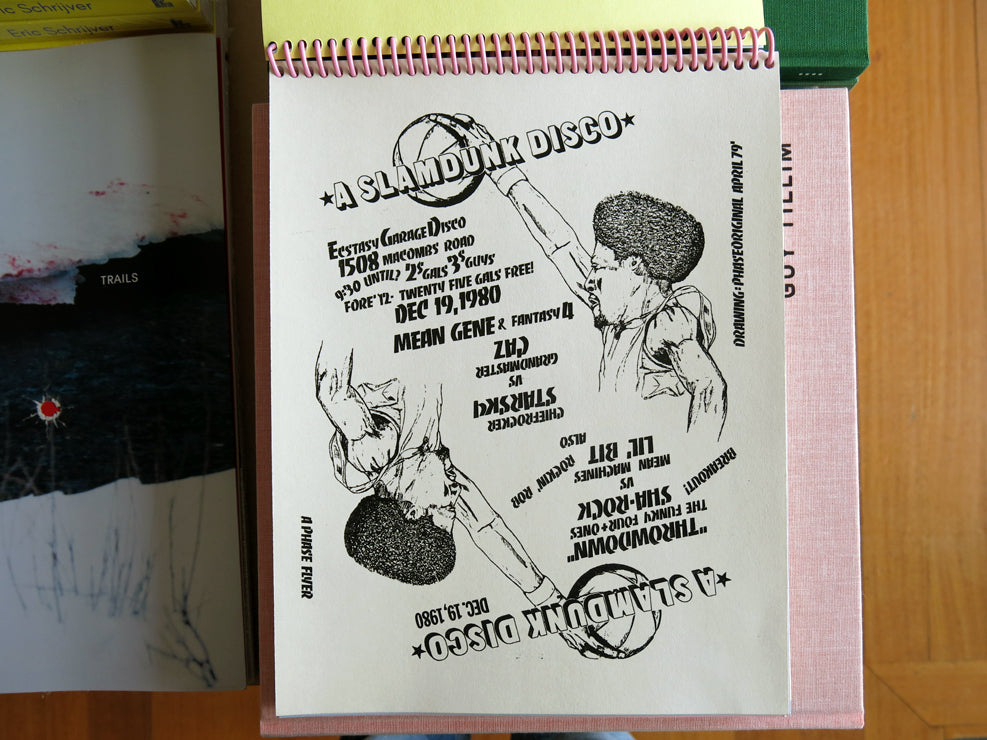 Eric Schrijver
Eric Schrijver
TRAILS
★A SLAMDUNK DISCO★
ECSTASY GARAGE DISCO
1508 MACOMBS ROAD
9:30 UNTIL? 2$ GALS 3$ GUYS
FORE' 12- TWENTY FIVE GALS FREE!
DEC 19, 1980
MEAN GENE & FANTASY 4
DRAWING: PHASE ORIGINAL APRIL 79'
GUY TILLIM
★A SLAMDUNK DISCO★
DEC. 19, 1980
"THROWDOWN"
THE FUNKY FOUR+ONES
SHA-ROCK
VS
MEAN MACHINES
LIL' BIT
ALSO ROCKIN' ROB
BREAKOUT!
CHIEFROCKER
STARSKY
VS
GRANDMASTER
CAZ
A PHASE FLYER